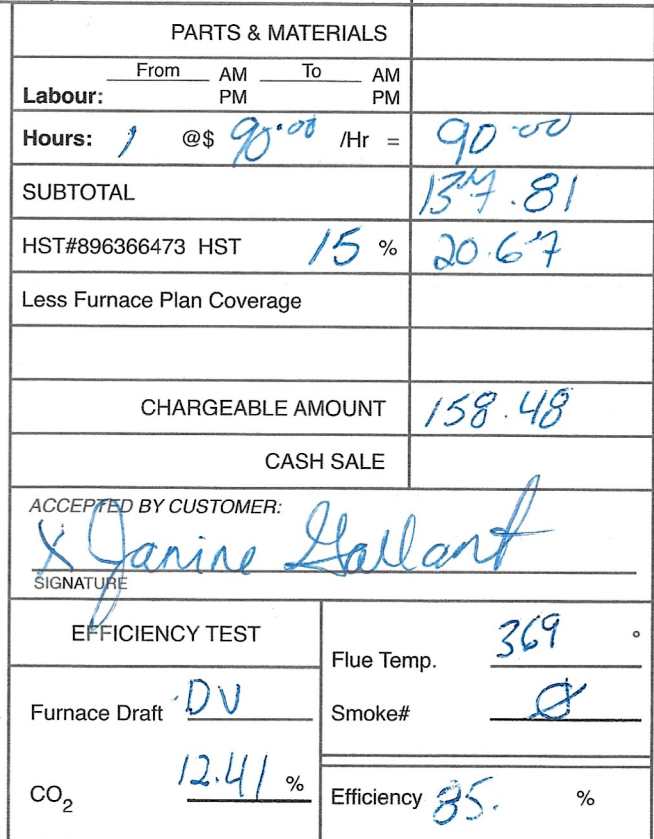 PARTS & MATERIALS
From AM To AM
Labour: PM PM
Hours: 1 @$ 90.00 /Hr = 90.00
SUBTOTAL 137.81
HST#896366473 HST 15 % 20.67
Less Furnace Plan Coverage
CHARGEABLE AMOUNT 158.48
CASH SALE
ACCEPTED BY CUSTOMER:
X Janine Gallant
SIGNATURE
EFFICIENCY TEST
Flue Temp. 369 °
Furnace Draft DV
Smoke# Ø
CO₂ 12.41 %
Efficiency 85. %